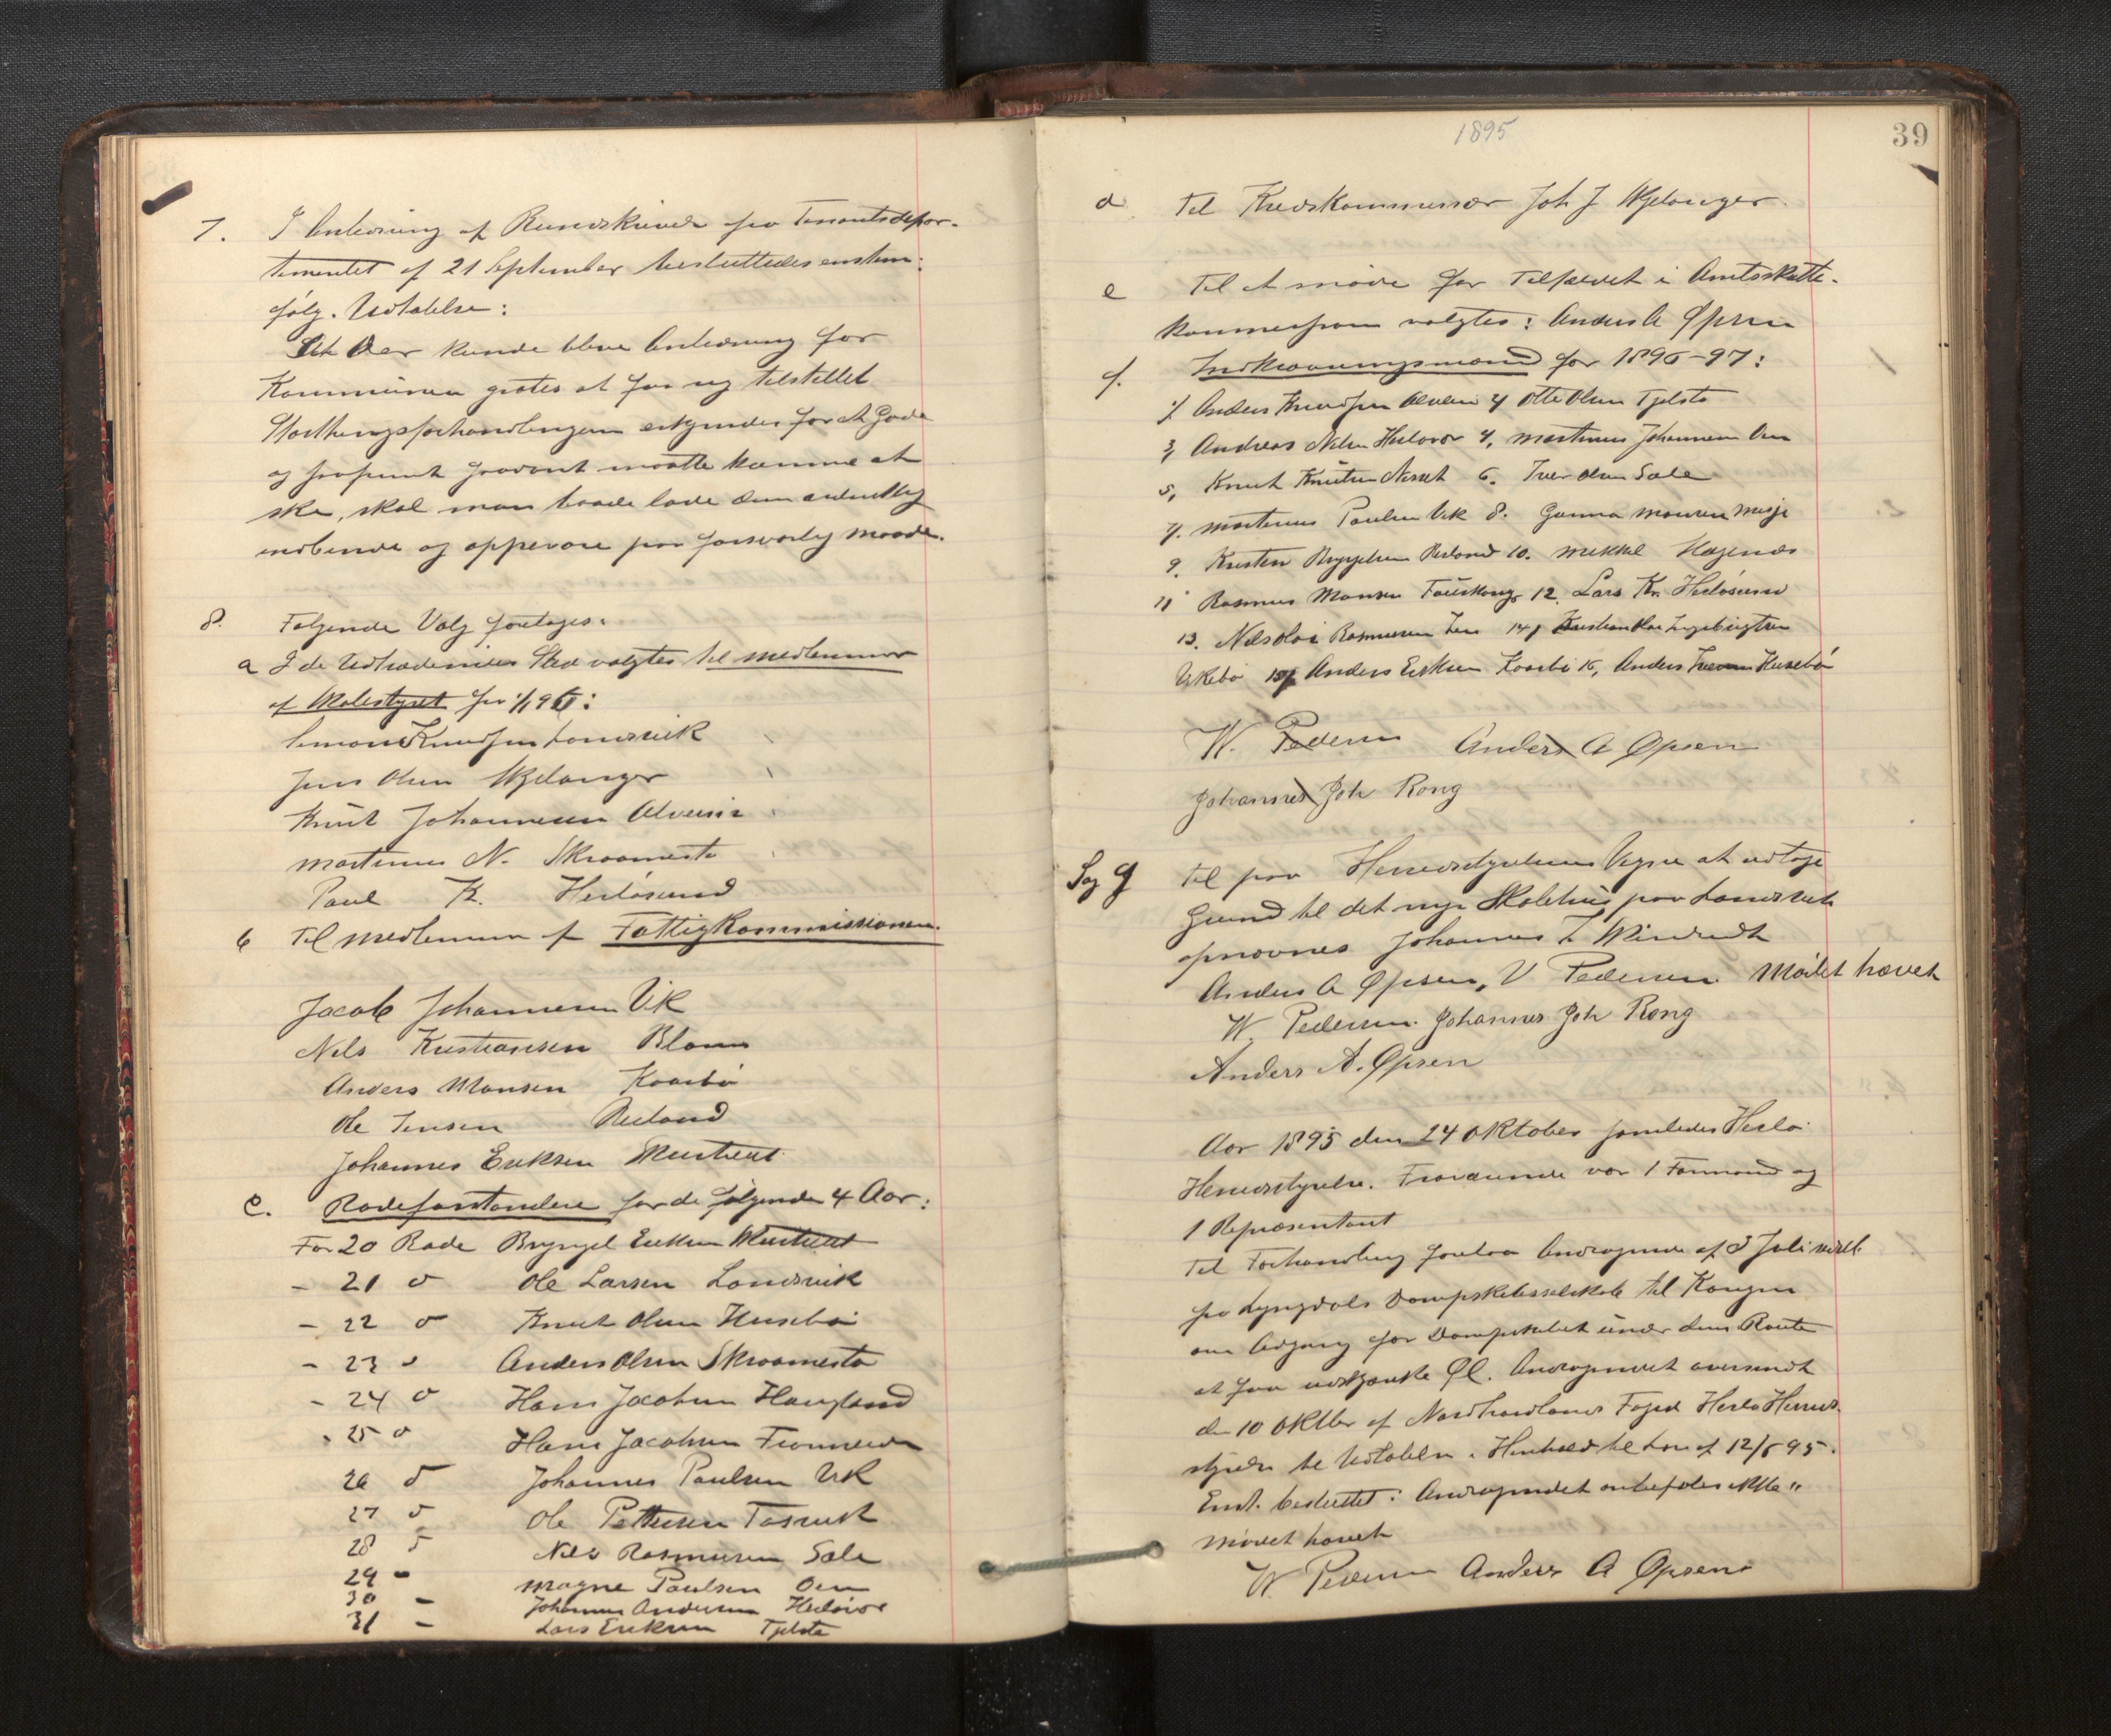 7. I Anledning af Rundskrivelse fra Finantsdepar-
tementet af 21 September besluttedes enstem:
følg. Udtalelse:
at der kunde blive Anledning for
Kommunen gratis at faa sig tilstillet
Storthingsforhandlingerne erkjendes for et Gode
og saafremt saadant maatte komme at
ske, skal man baade lade dem ordentlig
indbinde og opbevare paa forsvarlig Maade.
8. Følgende Valg foretages:
a I de Udtrædendes Sted valgtes til Medlemmer
af Skolestyret fra 1/1 96:
Simon Knudsen Landsvik
Jens Olsen Skjelanger
Knut Johannesen Alveim
Martinus N. Skraamestø
Paul K. Herløsund
b Til Medlemmer af Fattigkommissionen.
Jacob Johannesen Vik
Nils Kristiansen Blom
Anders Monsen Kaarbø
Ole Jensen Risland
Johannes Eriksen
c. Rodeforstandere for de følgende 4 Aar:
For 20 Rode Brynjel Eriksen
- 21 o Ole Larsen Landsvik
- 22 o Knut Olsen Husebø
- 23 o Anders Olsen Skraamestø
- 24 o Hans Jacobsen Haugland
- 25 o Hans Jacobsen
26 o Johannes Paulsen Vik
27 o Ole Pettersen
28 o Nils Rasmusen Sale
29 - Magne Paulsen Oen
30 - Johannes Andersen Herløvær
31 - Lars Eriksen Tjelstø
1895
39
d. Til Kredskommissær Joh J Skjelanger.
e Til at møde for Tilfældet i Amtsskatte-
kommissionen valgtes: Anders A Opsen
f. Indkvarteringsmænd for 1896-97:
1/ Anders Knudsen Alveim 2/ Otte Olsen Tjelstø
3, Andreas Nilsen Herløvær 4, Martinus Johannesen Oen
5, Knut Knutsen Nesset 6. Iver Olsen Sale
7. Martinus Paulsen Vik 8. Gunna Monsen Misje
9. Kristen Brynjelsen Risland 10. Mikkel Hagenæs
11 Rasmus Monsen Fauskang 12. Lars Kr. Herløsund
13. Nils Olai Rasmusen 14, Kristian Olai Ingebrigtsen
Urkebø 15, Anders Eriksen Kaarbø 16, Anders Husebø
W. Pedersen Anders A Opsen
Johannes Joh Rong
Sag g Til paa Herredstyrelsens Vegne at udtage
Grund til det nye Skolehus paa Landsvik
opnævnes Johannes
Anders A Opsen, W Pedersen. Mødet hævet
W. Pedersen. Johannes Joh Rong
Anders A. Opsen
Aar 1895 den 24 Oktober samledes Herlø
Herredstyrelse. Fraværende var 1 Formand og
1 Repræsentant
Til Forhandling forelaa Andragende af 3 Juli
fra Lyngdals Dampskibsselskab til Kongen
om Adgang for Dampskibet under dens Route
at faa udskjænke Øl. Andragendet oversendt
den 10 Oktbr af Nordhordlands Foged Herlø Herreds-
styrelse til Udtalelse i Henhold til Lov af 12/6 95.
Enst. besluttet: Andragendet anbefales ikke"
Mødet hævet
W. Pedersen Anders A Opsen